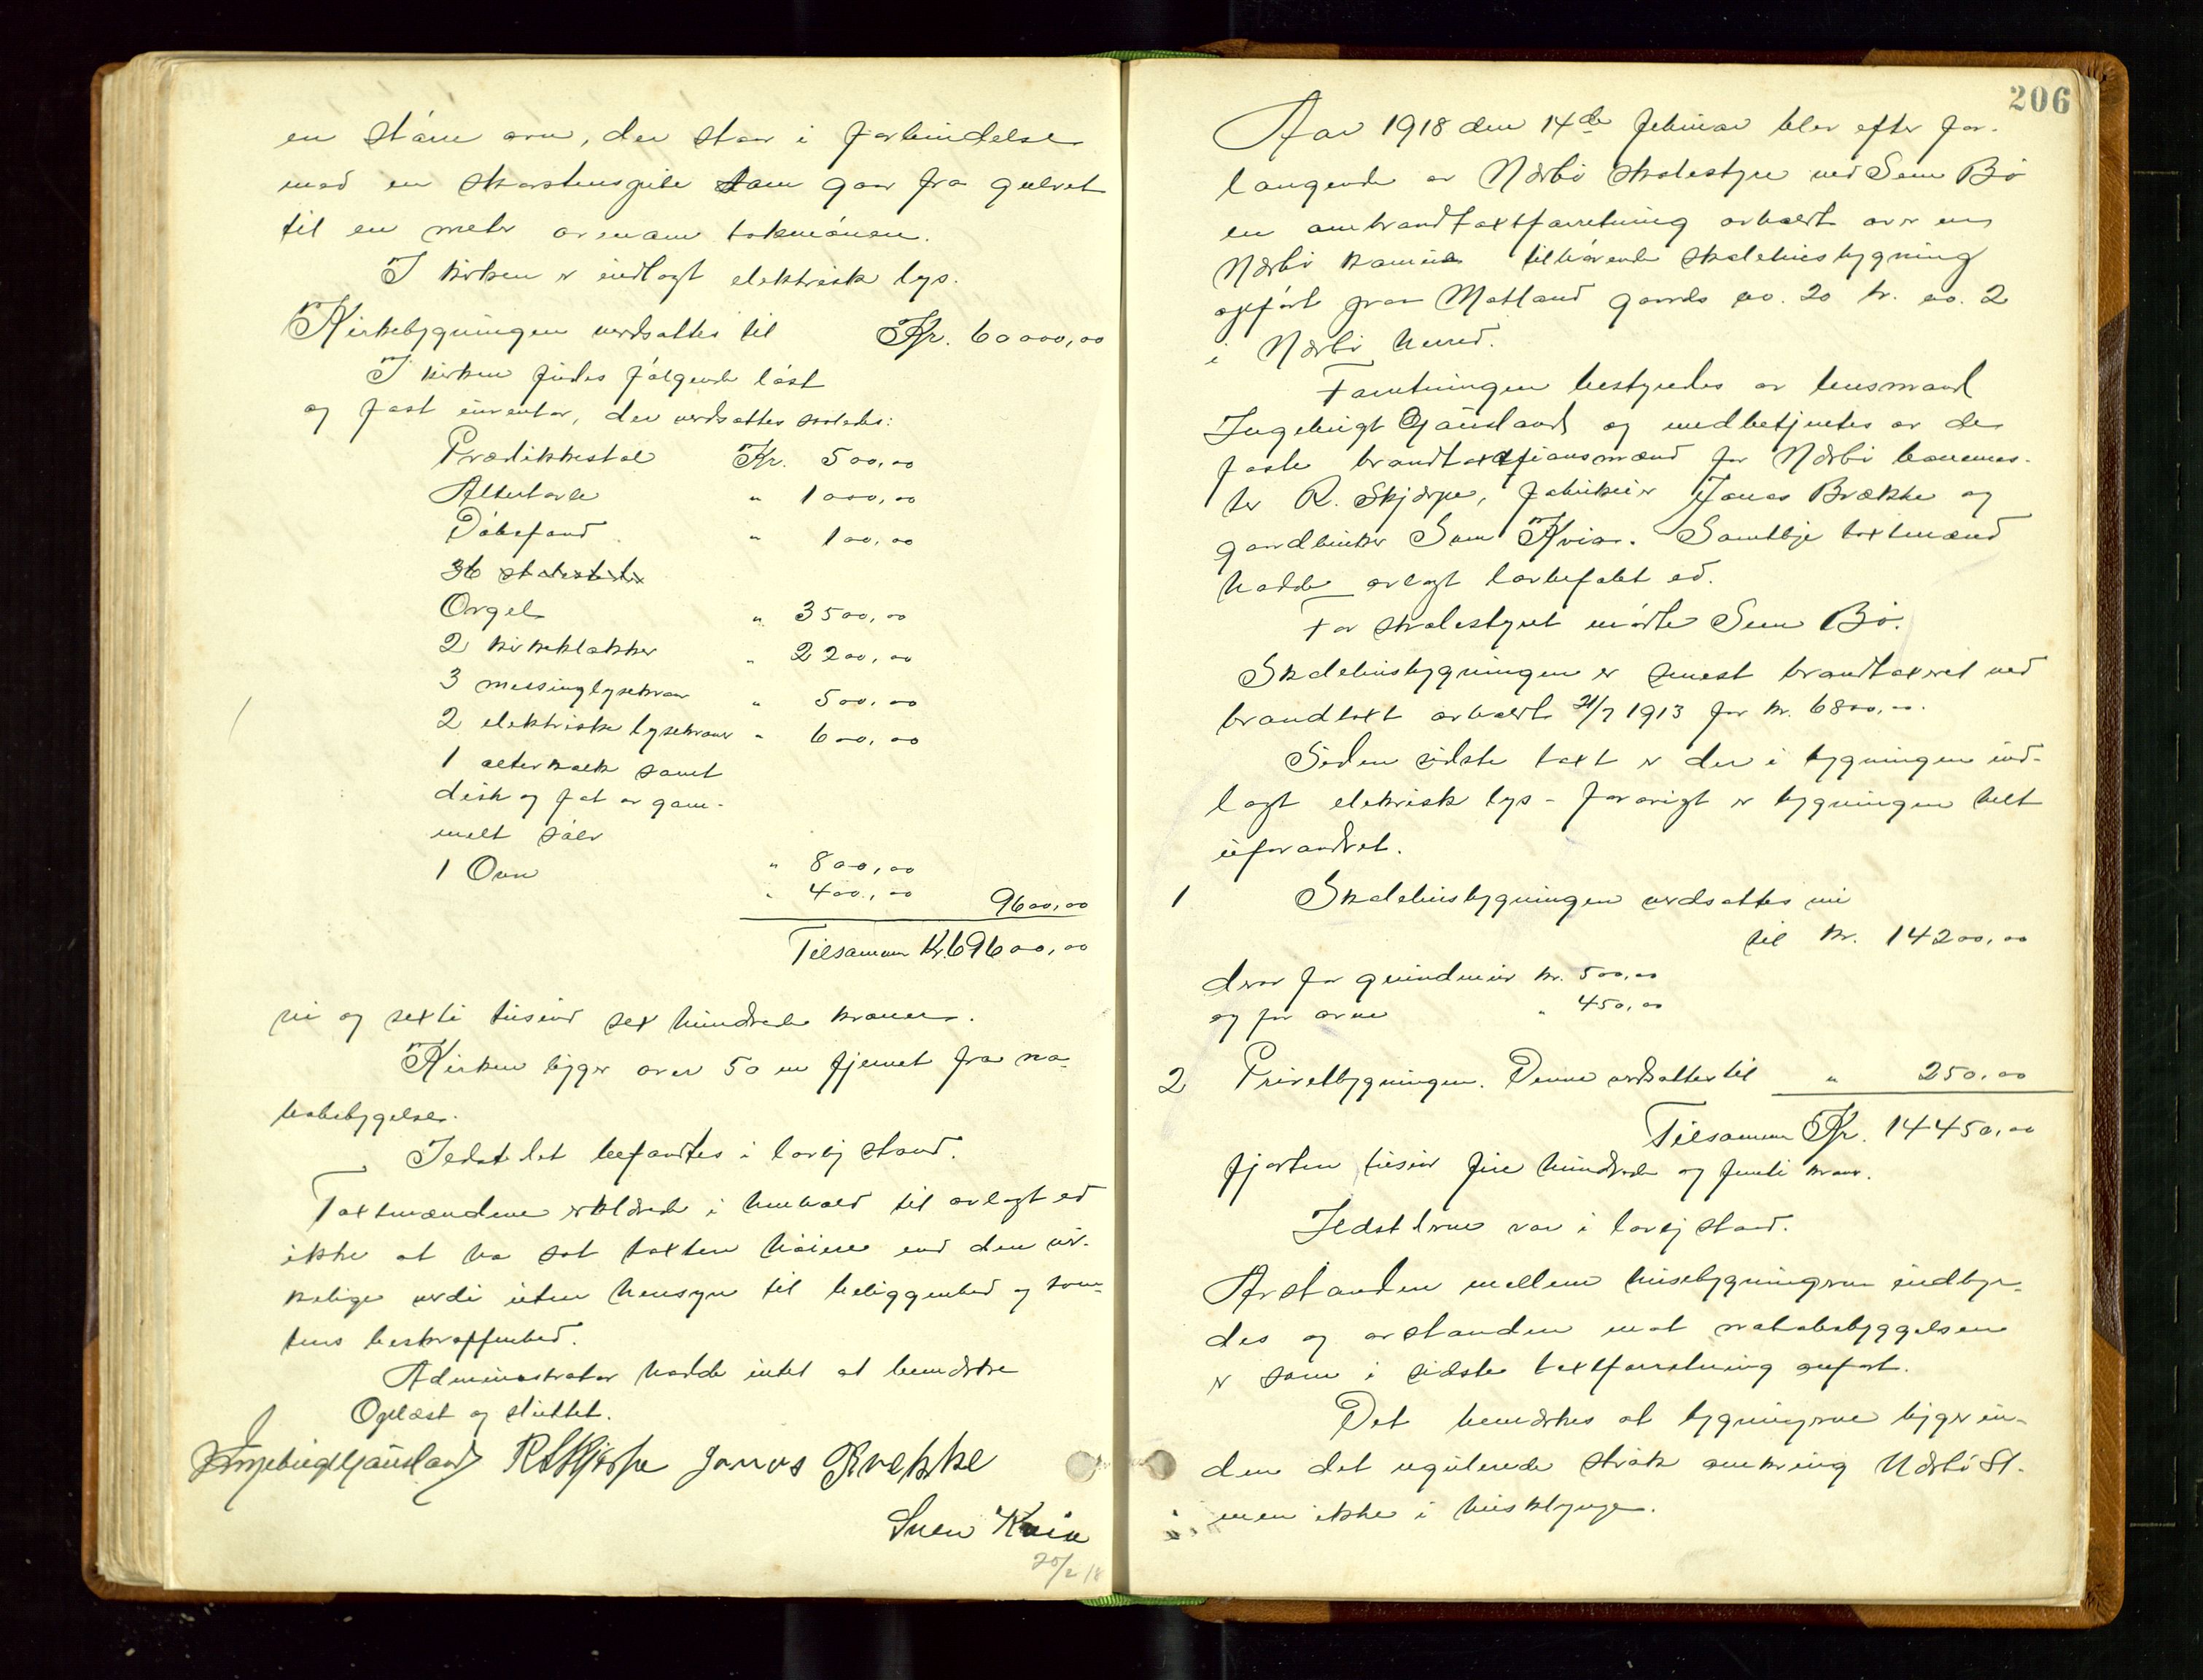 en større ovn, der staar i forbindelse
med en skorstenspibe som gaar fra gulvet
til en meter ovenom takmønen.
I kirken er indlagt elektrisk lys.
Kirkebygningen verdsattes til Kr. 60000,00
I kirken findes følgende løst
og fast inventar, der verdsattes saaledes:
Prædikkestol Kr. 500,00
Altertavle " 1000,00
Døbefond " 100,00
36
Orgel " 3500,00
2 kirkeklokker " 2200,00
3 messinglysekroner " 500,00
2 elektriske lysekroner " 600,00
1 alterkalk samt
disk og fat av gam-
melt sølv " 800,00
1 Ovn " 400,00 9600,00
Tilsammen Kr. 69600,00
ni og sexti tusind sex hundrede kroner.
Kirken ligger over 50 m fjernet fra na-
bobebygelse.
Ildstedet befandtes i lovlig stand.
Taxtmændene erklærede i henhold til avlagt ed
ikke at ha sat taxten høiere end den vir-
kelige verdi uten hensyn til beliggenhed og tom-
tens beskaffenhed.
Administrator hadde intet at bemerke
Oplæst og sluttet.
Ingebrigt Gausland R Skjerpe Jonas Brekke
Sven Kvia
20/2 18
206
Aar 1918 den 14de februar blev efter for-
langende av Nærbø skolestyre ved Sven Bø
en ombrandtaxtforretning avholdt over en
Nærbø kommune tilhørende skolehusbygning
opført paa Motland gaards no. 20 br. no. 2
i Nærbø herred.
Forretningen bestyredes av lensmand
Ingebrigt Gausland og medbetjentes av de
faste brandtaxtionsmænd for Nærbø banemes-
ter R. Skjerpe, fabrikeier Jonas Brække og
gaardbruker Sven Kvia. Samtlige taxtmænd
hadde avlagt lovbefalet ed.
For skolestyret møtte Sven Bø.
Skolehusbygningen er senest brandtaxeret ved
brandtaxt avholdt 21/7 1913 for kr. 6800,00.
Siden sidste taxt er der i bygningen ind-
lagt elekrisk lys - forøvrigt er bygningen helt
uforandret.
1 Skolehusbygningen verdsattes nu
til kr. 14200,00
derav for grundmur kr. 500,00
og for ovne " 450,00
2 Privetbygningen. Denne verdsattes til " 250,00
Tilsammen Kr. 14450,00
fjorten tusind fire hundrede og femti kroner.
Ildstederne var i lovlig stand.
Avstanden mellem husebygningerne indbyr-
des og avstanden mot nabobebyggelsen
er som i sidste taxtforretning anført.
Det bemerkes at bygningerne ligger in-
den det regulerede strøk omkring Nærbø St.
men ikke i husklynge.